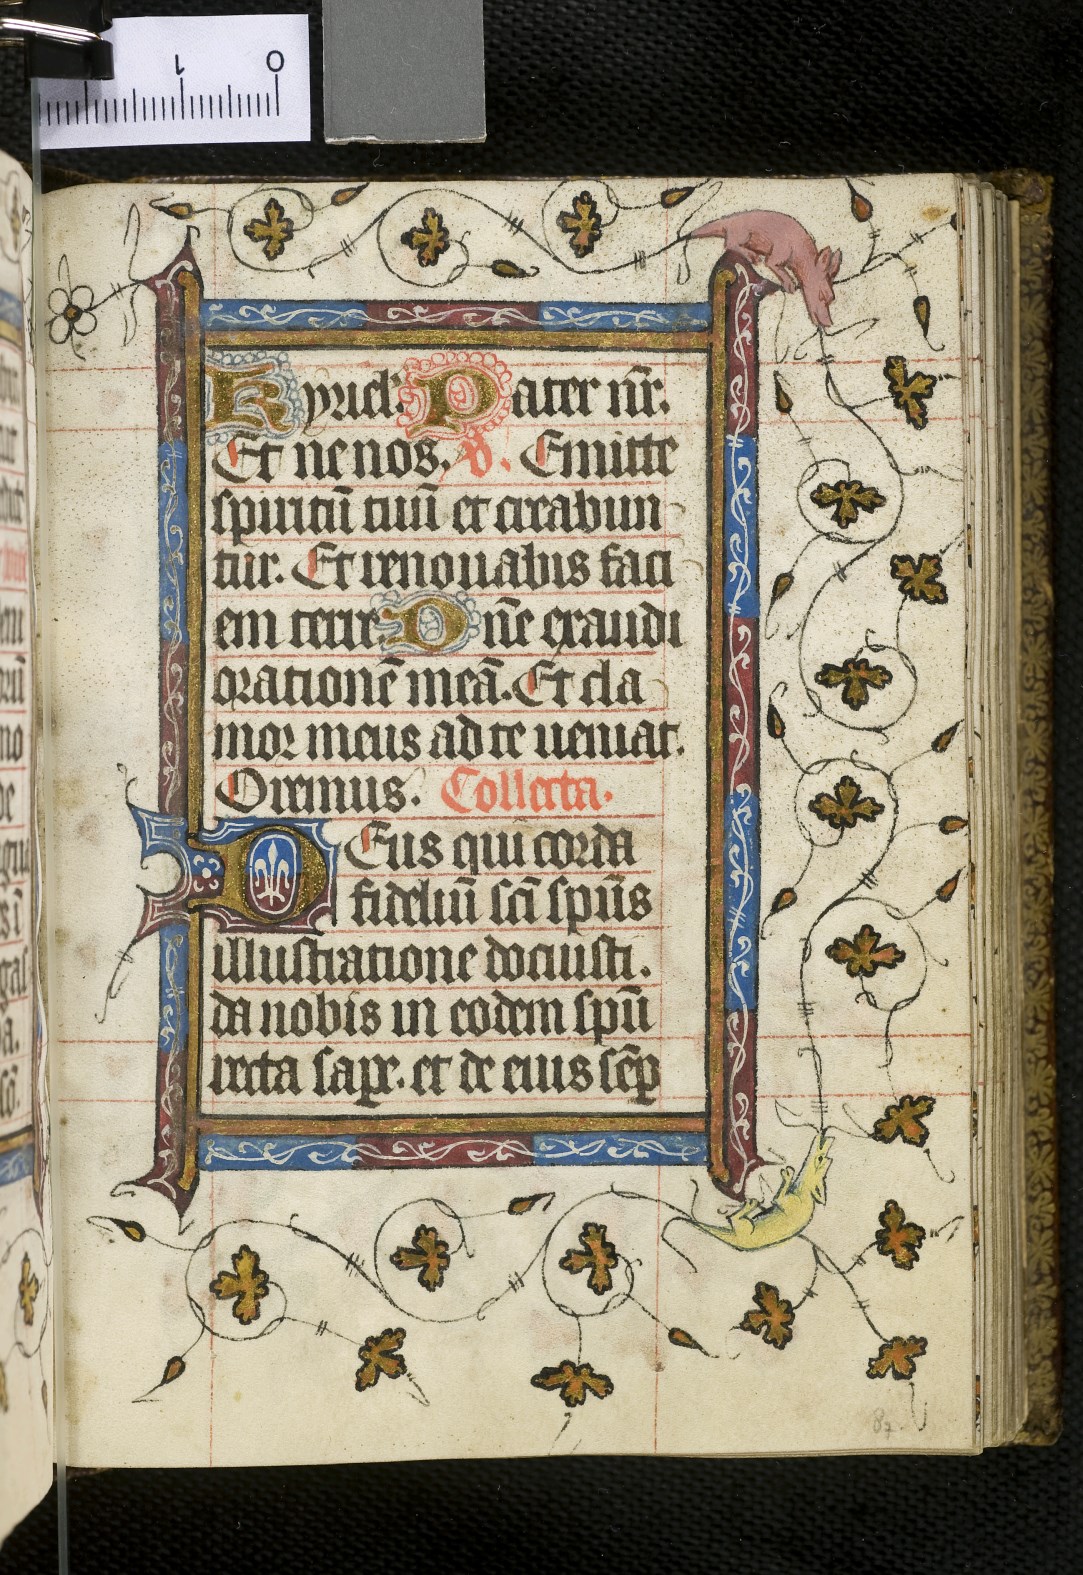 1 0
Kyriel'. Pater nr̄r.
Et ne nos. V. Emitte
spiritū tuū et creabun
tur. Et renouabis faci
em terre. Dn̄e exaudi
orationē meā. Et cla
mor meus ad te ueniat.
Oremus. Collecta.
DEus qui corda
fideliū sc̄i sp̄us
illustratione docuisti.
da nobis in eodem sp̄u
recta sape. et de eius sēp
87